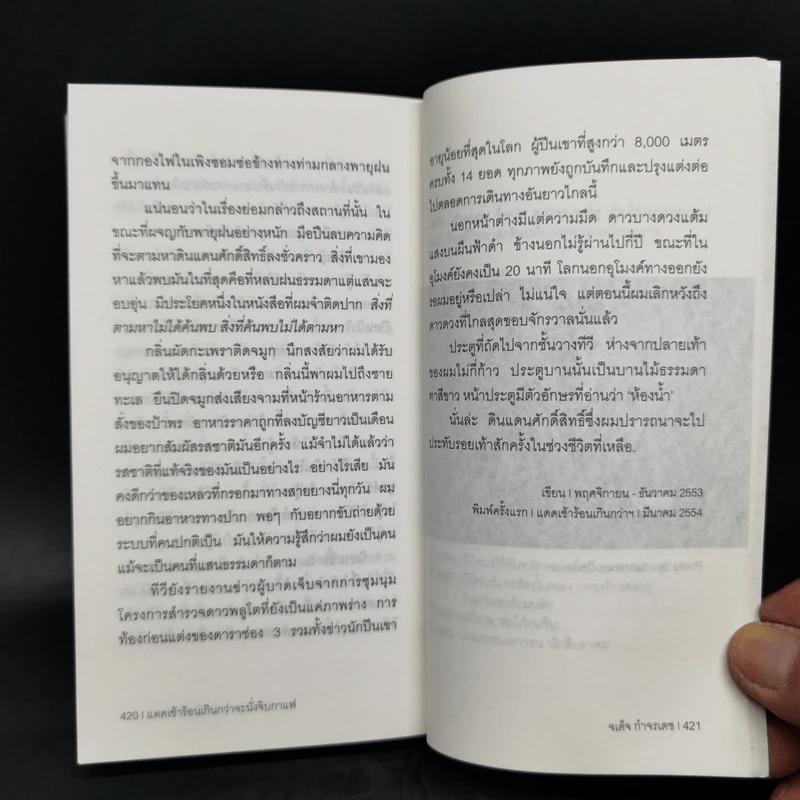 จากกองไฟในเพิงซอมซ่อข้างทางท่ามกลางพายุฝน
ขึ้นมาแทน
แน่นอนว่าในเรื่องย่อมกล่าวถึงสถานที่นั้น ใน
ขณะที่ผจญกับพายุฝนอย่างหนัก มือปืนลบความคิด
ที่จะตามหาดินแดนศักดิ์สิทธิ์ลงชั่วคราว สิ่งที่เขามอง
หาแล้วพบมันในที่สุดคือที่หลบฝนธรรมดาแต่แสนจะ
อบอุ่น มีประโยคหนึ่งในหนังสือที่ผมจำติดปาก สิ่งที่
ตามหาไม่ได้ค้นพบ สิ่งที่ค้นพบไม่ได้ตามหา
กลิ่นผัดกะเพราติดจมูก นึกสงสัยว่าผมได้รับ
อนุญาตให้ได้กลิ่นด้วยหรือ กลิ่นนี้พาผมไปถึงชาย
ทะเล ยืนปิดจมูกส่งเสียงจามที่หน้าร้านอาหารตาม
สั่งของป้าพร อาหารราคาถูกที่ลงบัญชียาวเป็นเดือน
ผมอยากสัมผัสรสชาติมันอีกครั้ง แม้จำไม่ได้แล้วว่า
รสชาติที่แท้จริงของมันเป็นอย่างไร อย่างไรเสีย มัน
คงดีกว่าของเหลวที่กรอกมาทางสายยางนี่ทุกวัน ผม
อยากกินอาหารทางปาก พอๆ กับอยากขับถ่ายด้วย
ระบบที่คนปกติเป็น มันให้ความรู้สึกว่าผมยังเป็นคน
แม้จะเป็นคนที่แสนธรรมดาก็ตาม
ทีวียังรายงานข่าวผู้บาดเจ็บจากการชุมนุม
โครงการสำรวจดาวพลูโตที่ยังเป็นแค่ภาพร่าง การ
ท้องก่อนแต่งของดาราช่อง 3 รวมทั้งข่าวนักปีนเขา
420 | แดดเช้าร้อนเกินกว่าจะนั่งจิบกาแฟ
อายุน้อยที่สุดในโลก ผู้ปีนเขาที่สูงกว่า 8,000 เมตร
ครบทั้ง 14 ยอด ทุกภาพยังถูกบันทึกและปรุงแต่งต่อ
ไปตลอดการเดินทางอันยาวไกลนี้
นอกหน้าต่างมีแต่ความมืด ดาวบางดวงแต้ม
แสงบนผืนฟ้าดำ ข้างนอกไม่รู้ผ่านไปกี่ปี ขณะที่ใน
อุโมงค์ยังคงเป็น 20 นาที โลกนอกอุโมงค์ทางออกยัง
รอผมอยู่หรือเปล่า ไม่แน่ใจ แต่ตอนนี้ผมเลิกหวังถึง
ดาวดวงที่ไกลสุดขอบจักรวาลนั่นแล้ว
ประตูที่ถัดไปจากชั้นวางทีวี ห่างจากปลายเท้า
ของผมไม่กี่ก้าว ประตูบานนั้นเป็นบานไม้ธรรมดา
ทาสีขาว หน้าประตูมีตัวอักษรที่อ่านว่า 'ห้องน้ำ'
นั่นล่ะ ดินแดนศักดิ์สิทธิ์ซึ่งผมปรารถนาจะไป
ประทับรอยเท้าสักครั้งในช่วงชีวิตที่เหลือ.
เขียน | พฤศจิกายน - ธันวาคม 2553
พิมพ์ครั้งแรก | แดดเช้าร้อนเกินกว่าฯ | มีนาคม 2554
จเด็จ กำจรเดช | 421